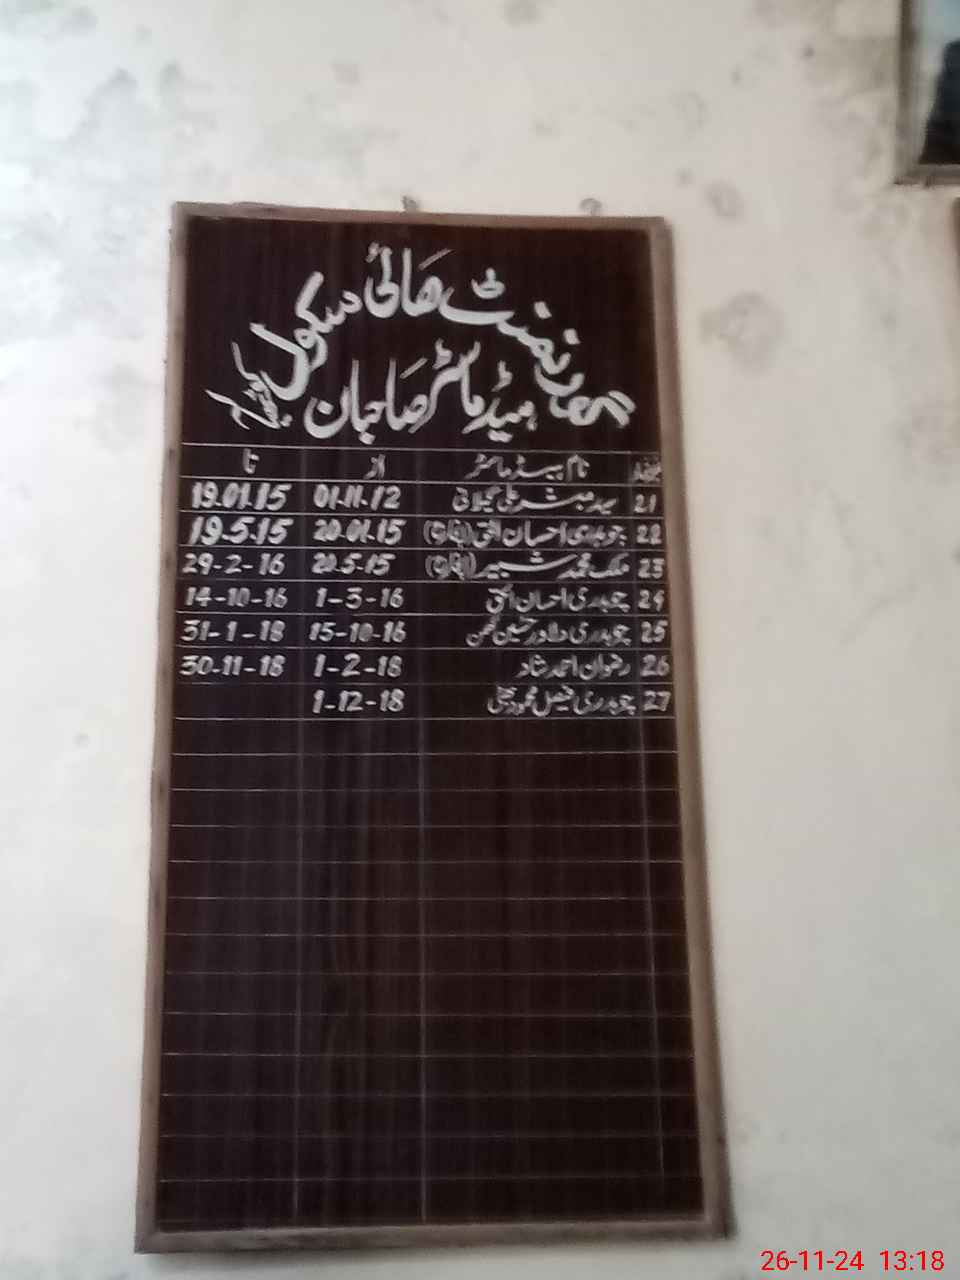 گورنمنٹ ھائی سکول
ہیڈ ماسٹر صاحبان
نمبر شمار نام ہیڈ ماسٹر از تا
21 سید مبشر علی گیلانی 01.11.12 19.01.15
22 چوہدری احسان الحق 20.01.15 19.5.15
23 ملک محمد شبیر 20.5.15 29-2-16
24 چوہدری احسان الحق 1-3-16 14-10-16
25 چوہدری دلاور حسین 15-10-16 31-1-18
26 رضوان احمد شاد 1-2-18 30-11-18
27 چوہدری فیصل محمود 1-12-18
26-11-24 13:18